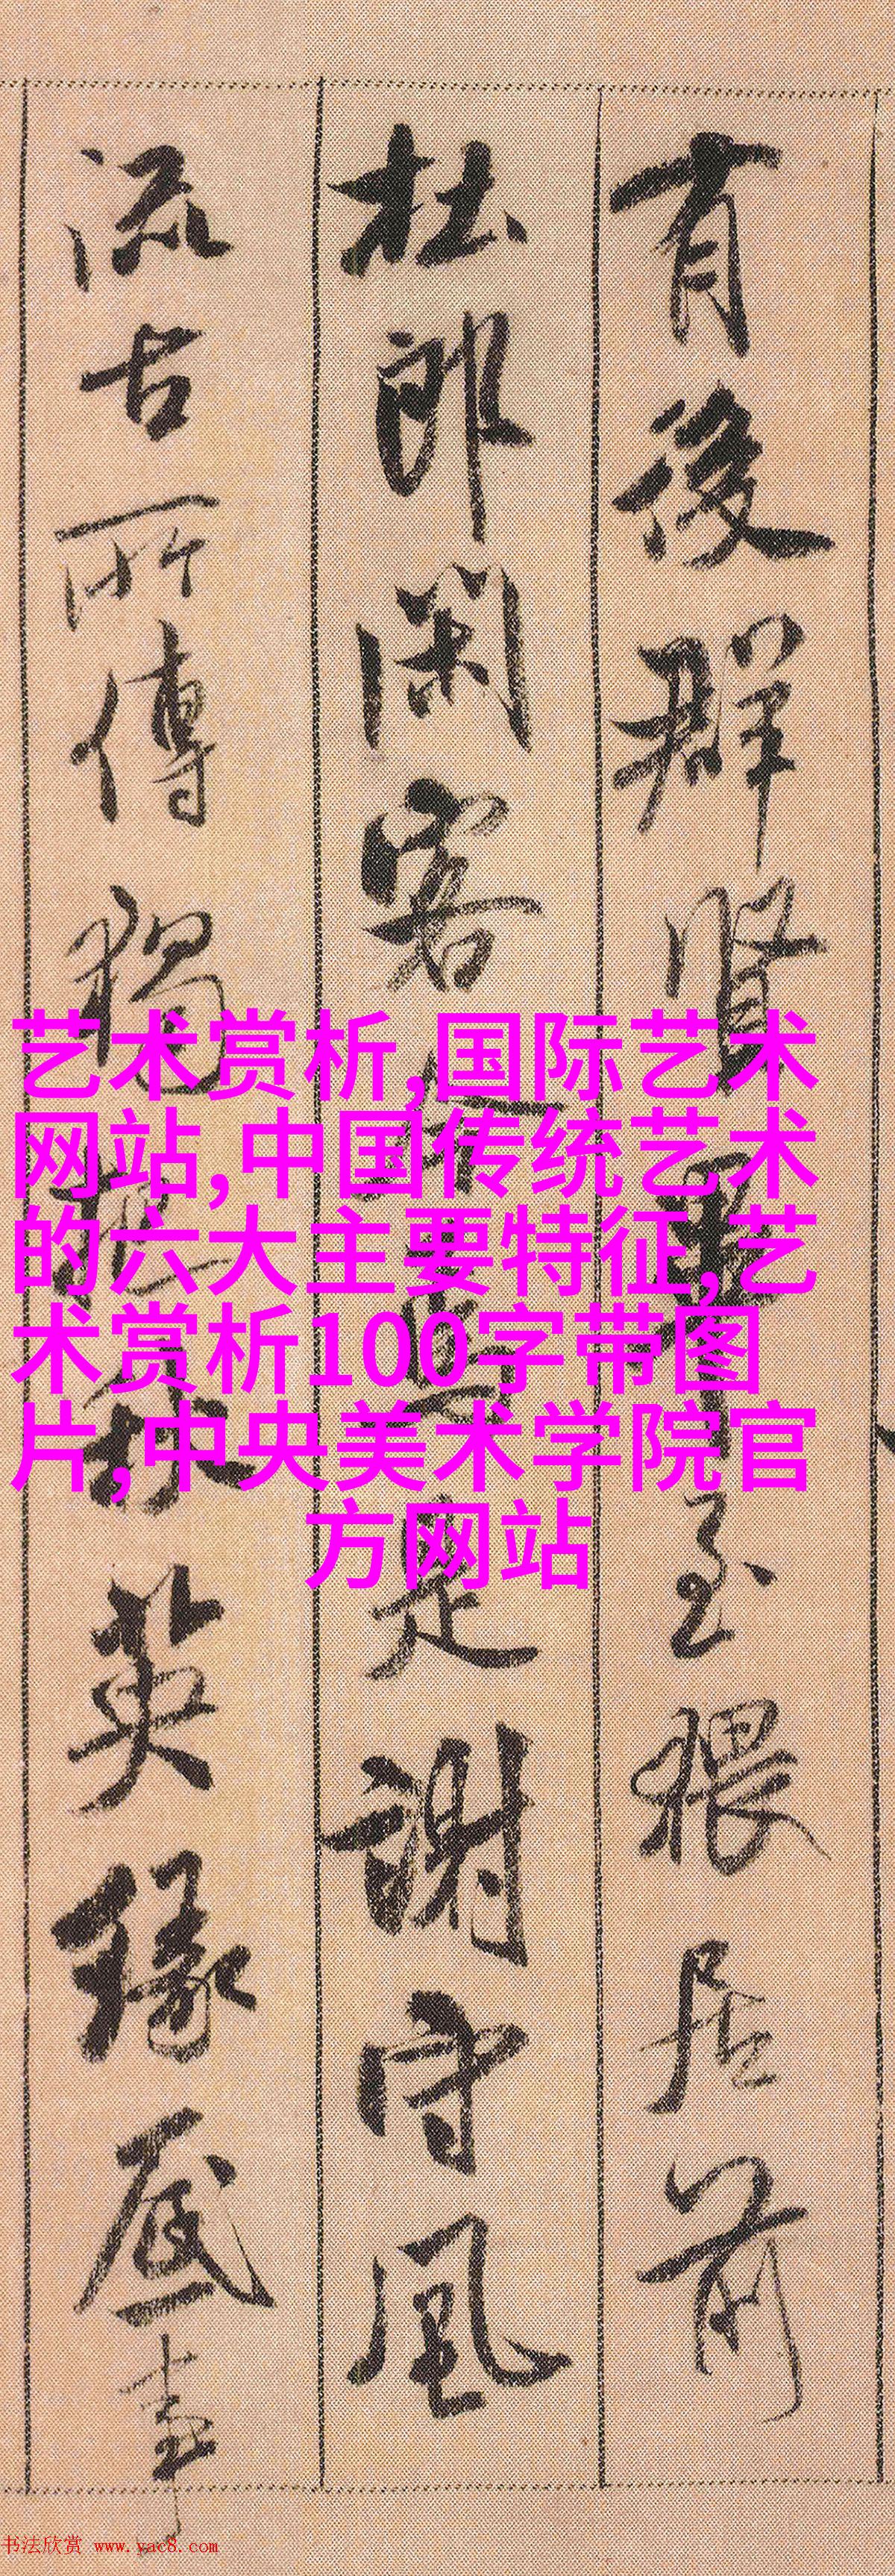 有後群賢畢至猥居前
杜郎閑客今焉是謝守風
流古所傳獨把秋英緣底事
艺术赏析,国际艺术
网站,中国传统艺术
的六大主要特征,艺
术赏析100字带图
片,中央美术学院官
方网站
书法欣赏 www.yac8.com